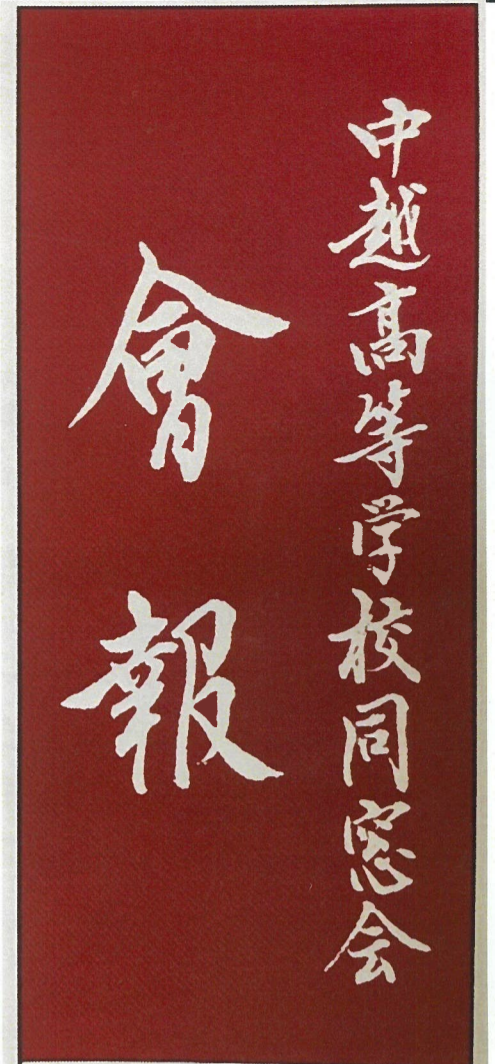 中越高等学校同窓会
會報